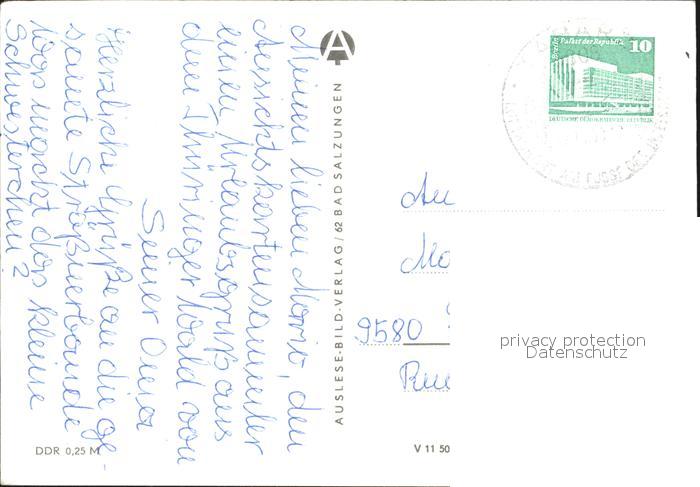 Meinen lieben Moris, den
Ansichtskartensammler
einen Urlaubsgruß aus
dem Thüringer Wald von
Seiner Oma
Herzliche Grüße an die ge-
samte Straßnerbande
Was macht das kleine
Schwesterchen?
DDR 0,25 M
AUSLESE-BILD-VERLAG/62 BAD SALZUNGEN
V 11 50
Berlin Palast der Republik
10
DEUTSCHE DEMOKRATISCHE REPUBLIK
An
Mo
9580
privacy protection
Datenschutz